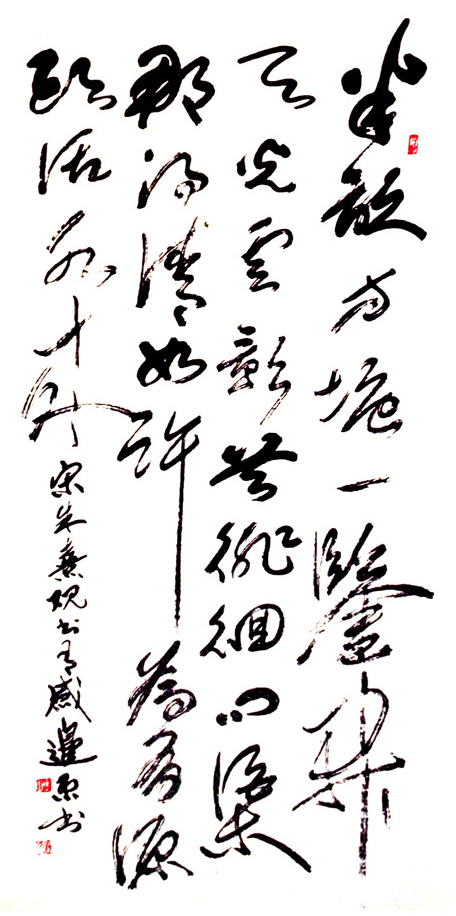 半畝方塘一鑒開
天光雲影共徘徊問渠
那得清如許為有源
頭活水来
宋朱熹观书有感邊书